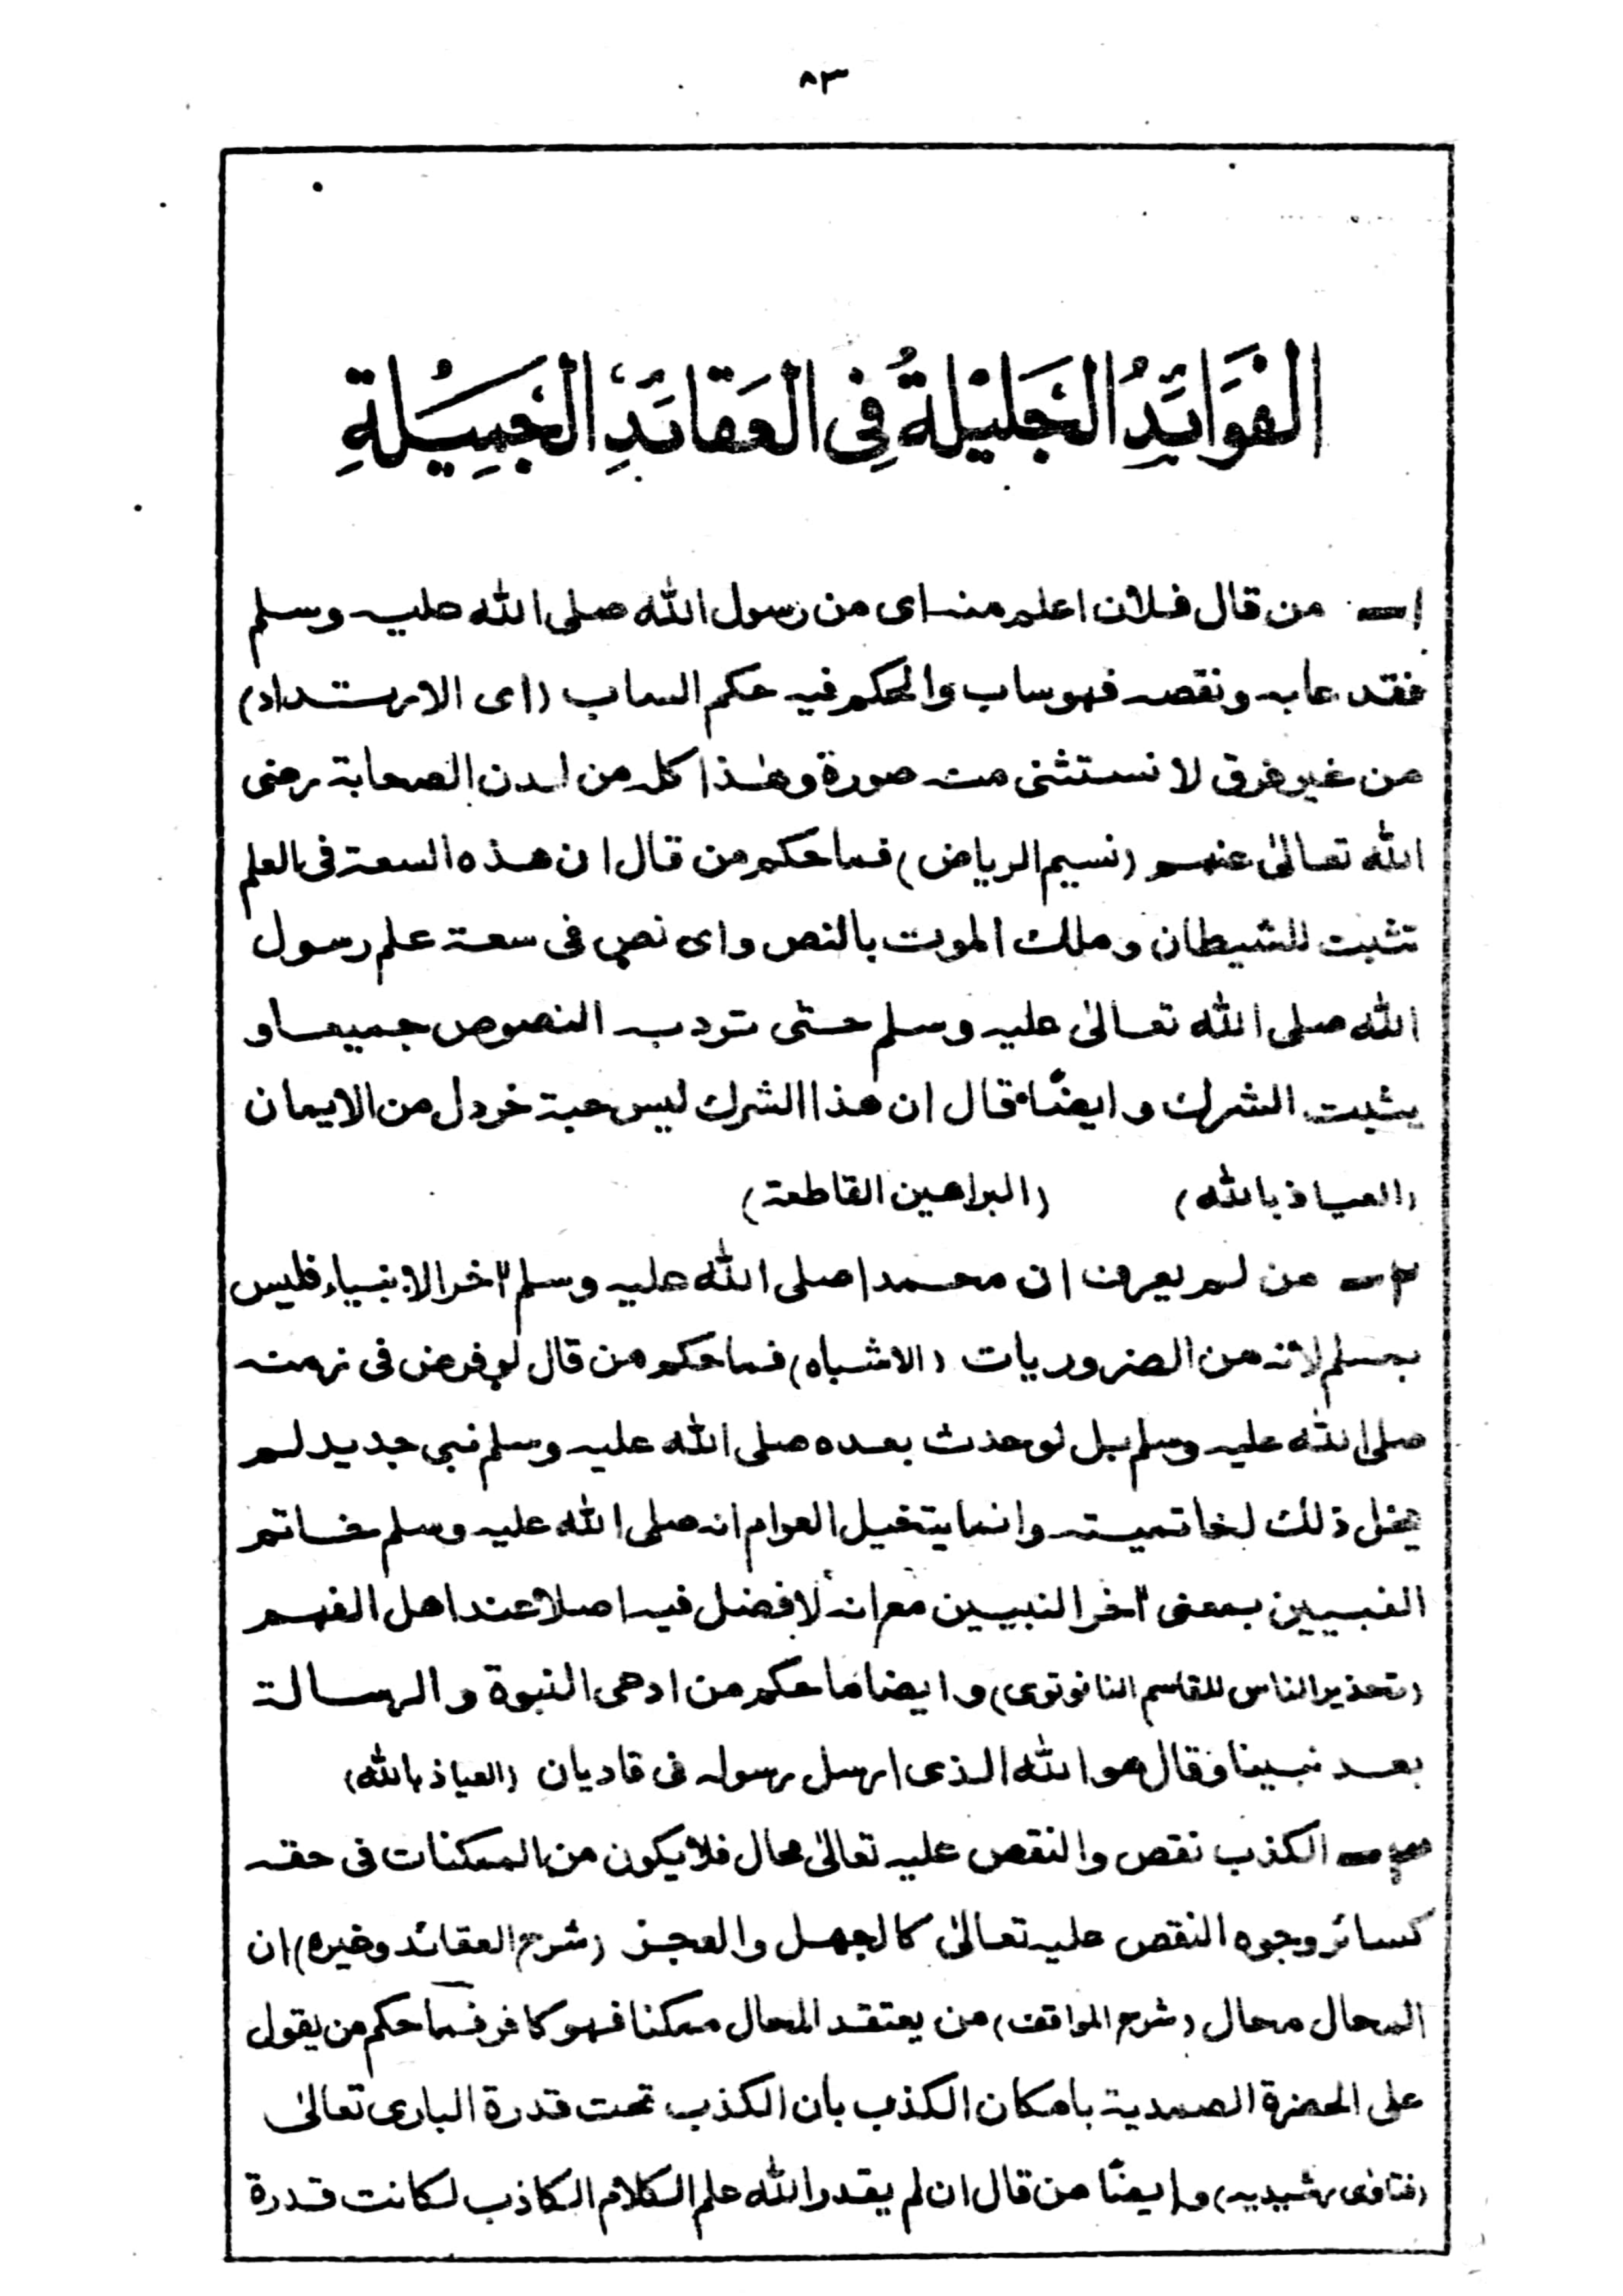 ٨٣
الفَوَائِدُ الجَلِيْلَةُ فِى العَقَائِدِ الجَمِيْلَةِ
١ــ من قال فلان اعلم منه اى من رسول الله صلى الله عليه وسلم
فقد عابه ونقصه فهو ساب والحكم فيه حكم الساب (اى الارستداد)
من غير فرق لا نستثنى منه صورة وهٰذا كله من لدن الصحابة رضى
الله تعالىٰ عنهم (نسيم الرياض) فما حكم من قال ان هذه السعة فى العلم
تثبت للشيطان وملك الموت بالنص واى نص فى سعة علم رسول
الله صلى الله تعالىٰ عليه وسلم حتى ترد به النصوص جميعا و
يثبت الشرك وايضًا قال ان هذا الشرك ليس حبة خردل من الايمان
(العياذ بالله) (البراهين القاطعة)
٢ــ من لم يعرف ان محمدا صلى الله عليه وسلم اٰخر الانبياء فليس
بمسلم لانه من الضروريات (الاشباه) فما حكم من قال لو فرض فى زمنه
صلى الله عليه وسلم بل لو حدث بعده صلى الله عليه وسلم نبى جديد لم
يخل ذلك لخاتميته وانما يتخيل العوام انه صلى الله عليه وسلم خاتم
النبيين بمعنى اٰخر النبيين مع انه لا فضل فيه اصلا عند اهل الفهم
(تحذير الناس للقاسم النانوتوى) وايضا ما حكم من ادعى النبوة والرسالة
بعد نبينا وقال هو الله الذى ارسل رسوله فى قاديان (العياذ بالله)
٣ــ الكذب نقص والنقص عليه تعالىٰ محال فلا يكون من الممكنات فى حقه
كسائر وجوه النقص عليه تعالىٰ كالجهل والعجز (شرح العقائد وغيره) ان
المحال محال (شرح المواقف) من يعتقد المحال ممكنا فهو كافر فما حكم من يقول
على الحضرة الصمدية بامكان الكذب بان الكذب تحت قدرة البارى تعالىٰ
(فتاوى رشيديه) وايضًا من قال ان لم يقدر الله علم الكلام الكاذب لكانت قدرة